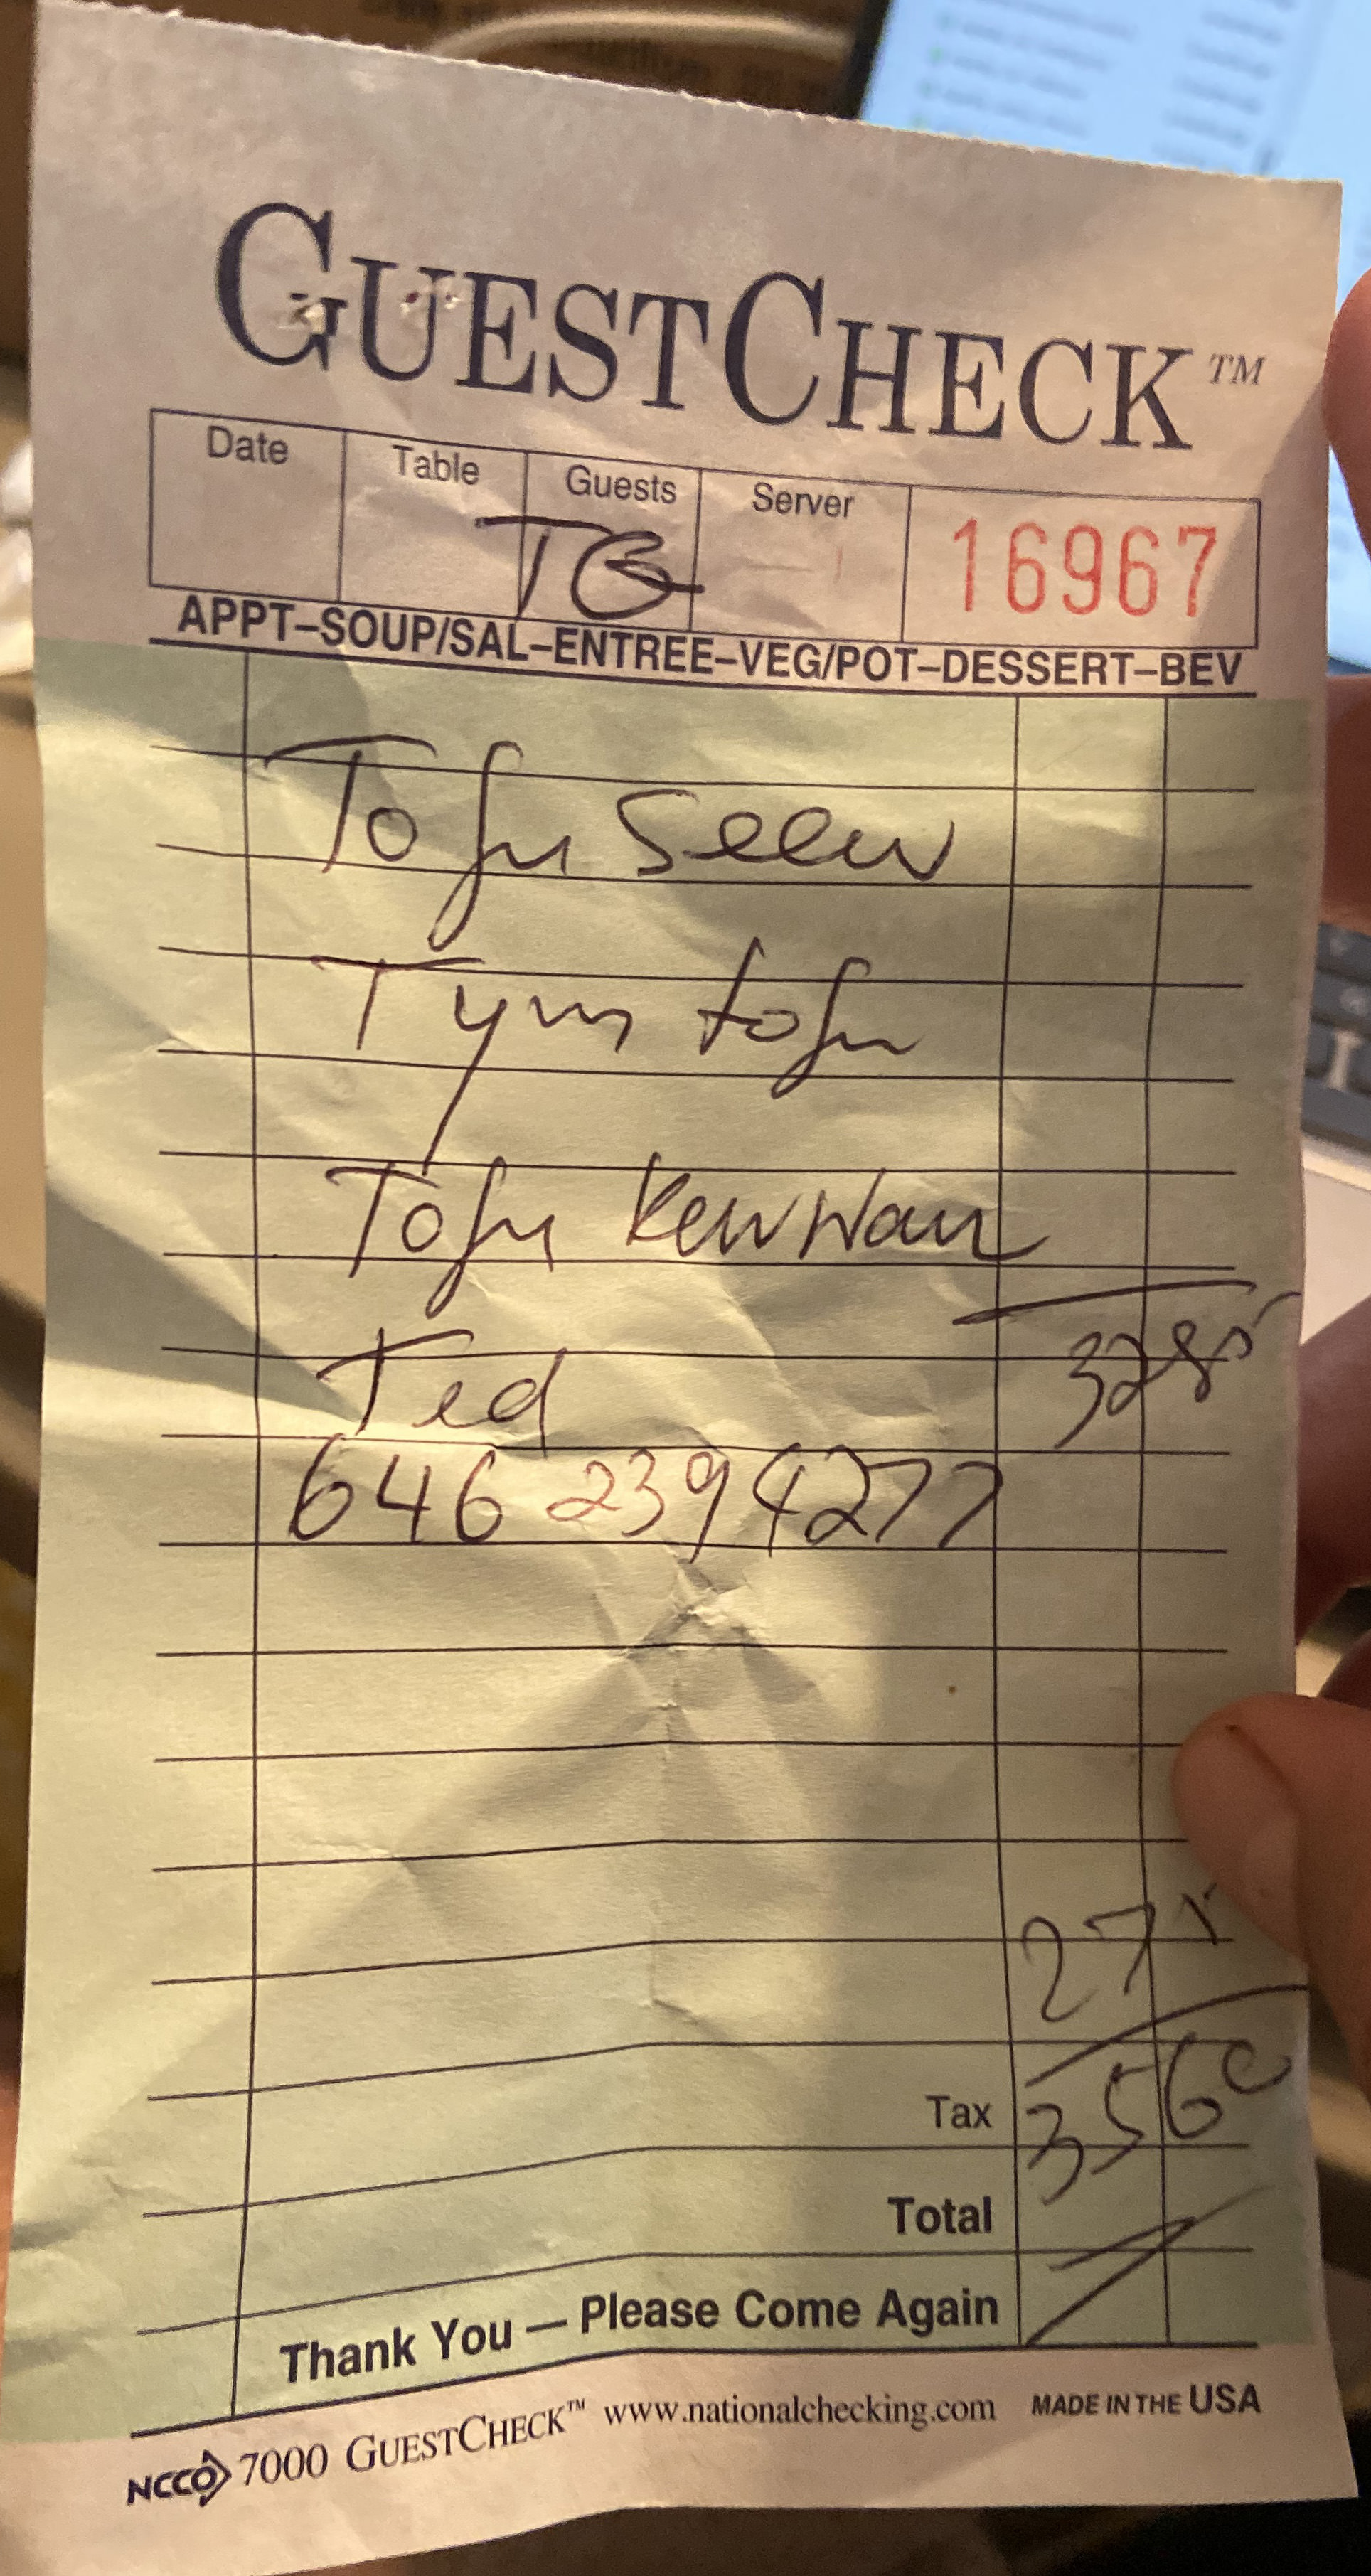 GUESTCHECK™
Date Table Guests Server 16967
TG
APPT–SOUP/SAL–ENTREE–VEG/POT–DESSERT–BEV
Tofu Seew
Tym tofu
Tofu Kew Wan
3285
Ted
646 239 4277
275
Tax 3560
Total
Thank You — Please Come Again
NCCO 7000 GUESTCHECK™ www.nationalchecking.com MADE IN THE USA